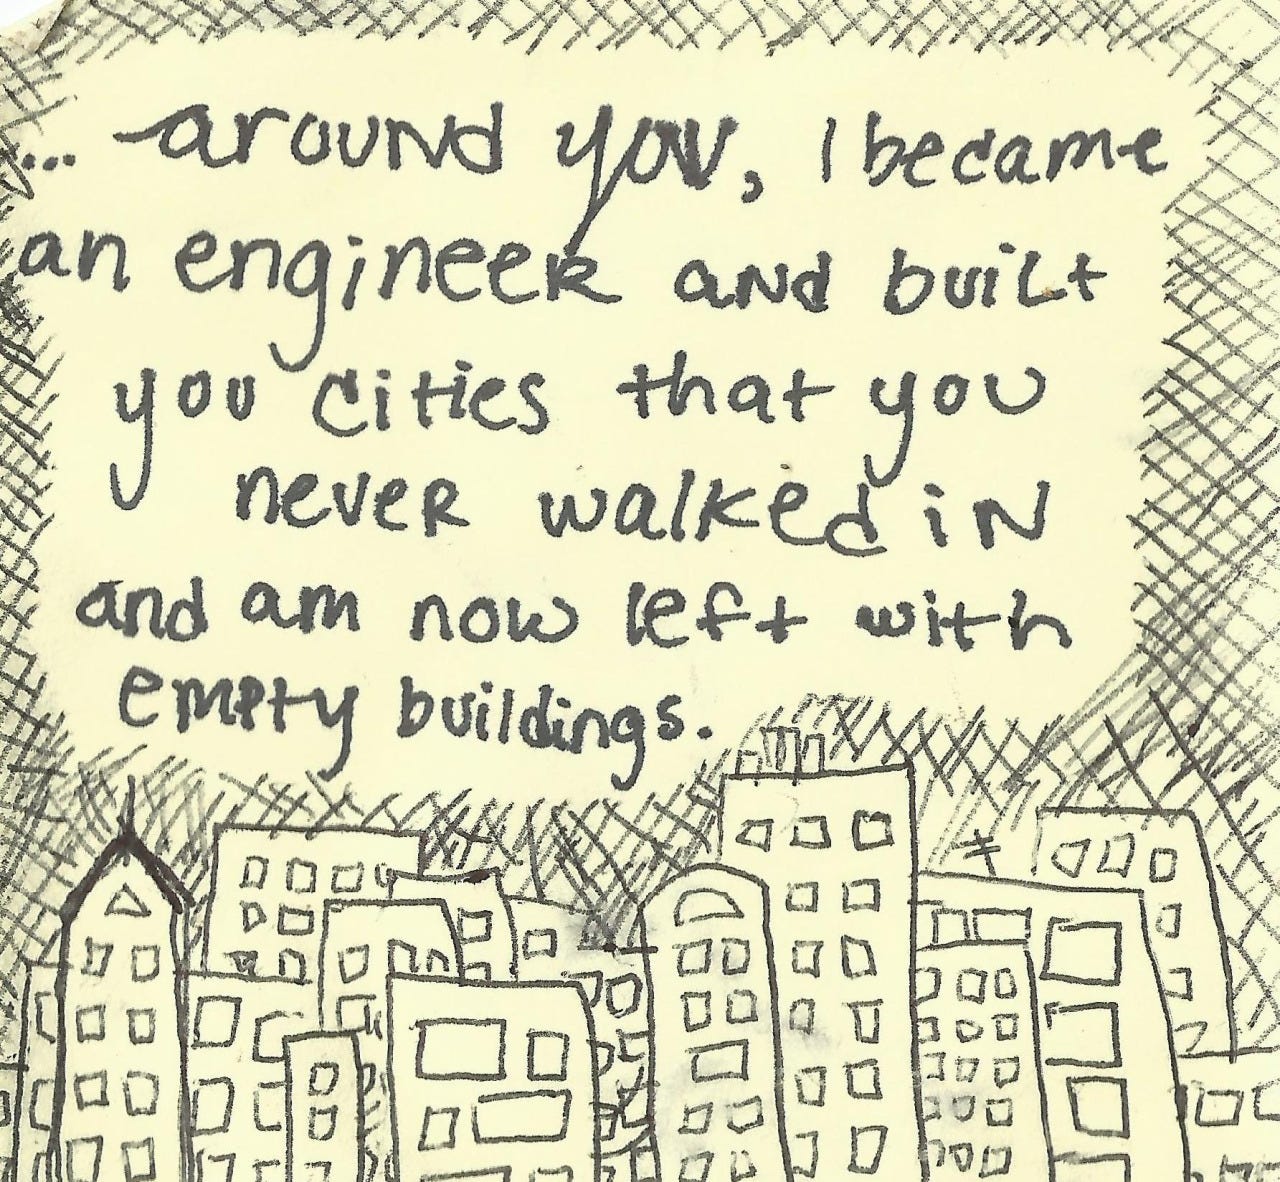 ... around you, I became
an engineer and built
you cities that you
never walked in
and am now left with
empty buildings.